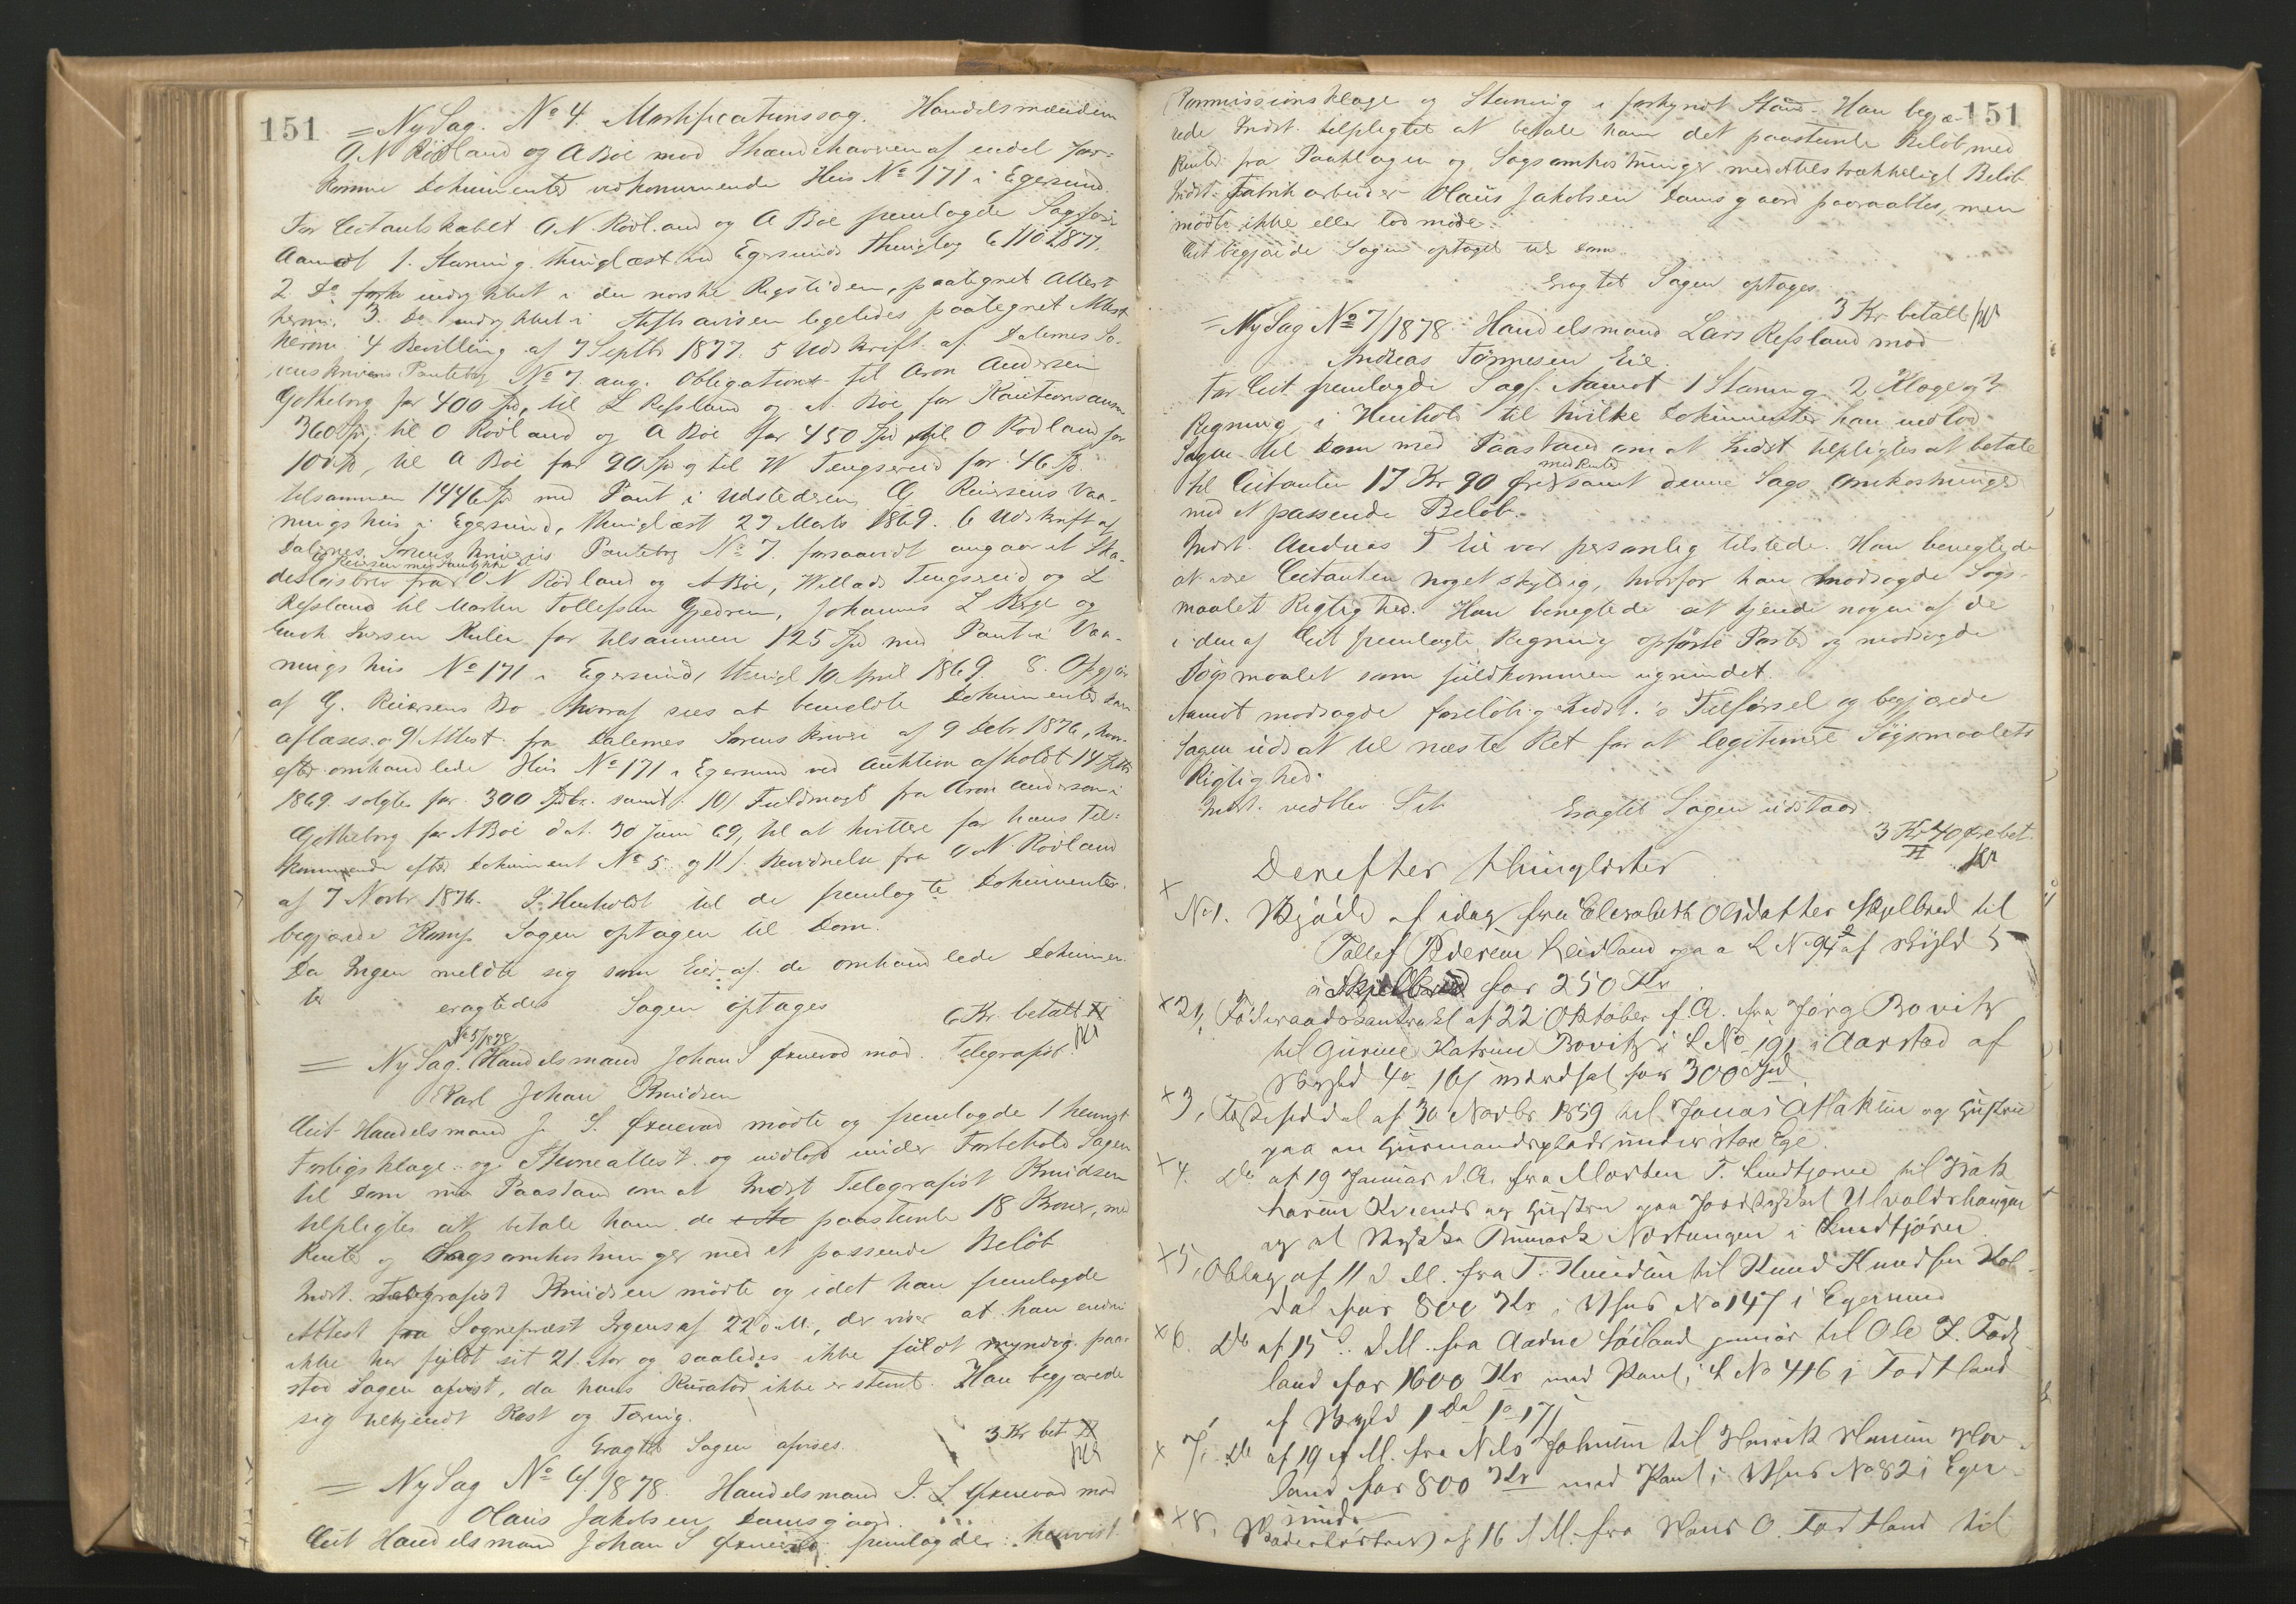 151
= Ny Sag. No 4. Mortificationssag. Handelsmændene
O N Rödland og A Böe mod Ihændehaveren af endel for-
komne Dokumenter vedkommende Hus No 171 i Egersund.
For Citantskabet O N. Rödland og A Böe fremlagde Sagförer
Aamot 1. Stævning thinglæst ved Egersunds Thinglag 6/10 1877.
2 Do indrykket i den norske Rigstidende, paategnet Attest
herom. 3. Do indrykket i Stiftsavisen ligeledes paategnet Attest
herom 4 Bevilling af 7 Septbr 1877. 5 Udskrift af Dalernes So-
renskrivers Pantebog No 7. ang. Obligation til Aron Andersen
Gotheborg for 400 Spd, til L Refsland og A. Böe for Kautionsansv
360 Spd, til O Rödland og A Böe for 450 Spd til O Rödland for
100 Spd, til A Böe for 90 Spd og til W Tengsereid for 46 Spd.
tilsammen 1446 Spd med Pant i Udstederen G Reiersens Vaa-
ningshus i Egersund, thinglæst 27 Marts 1869. 6 Udskrift af
Dalernes Sorenskriveris Pantebog No 7. forsaavidt angaar et Ska-
desløsbrev fra O N Rödland og A Böe, Willads Tengsereid og L
Refsland til Martin Tollefsen Gjedrem, Johannes L Berge og
Enok Iversen Rulen for tilsammen 125 Spd med Pant i Vaa-
ningshus No 171 i Egersund, thingl 10 April 1869. 8. Opgjör
af G. Reiersens Bo hvoraf sees at bemeldte Dokumenter kan
aflæses. og 9 Attest fra Dalernes Sorenskriver af 9 Debr 1876, hvor-
efter omhandlede Hus No 171 i Egersund ved Auktion afholdt 14
1869 solgtes for 300 Spdlr. samt 10/ Fuldmagt fra Aron Anderson i
Gotheborg for A Böe dat. 30 Juni 69, til at kvittere for hans Til-
kommende efter Dokument No 5. og 11/. Bevidnelse fra O N Rödland
af 7 Novbr 1876. I Henhold til de fremlagte Dokumenter
begjærede Komp. Sagen optagen til Dom.
Da Ingen meldte sig som Eier af de omhandlede Dokumen-
ter eragtedes Sagen optages
6 Kr. betalt
= Ny Sag. No 5/1878 Handelsmand Johan S Ørnevad mod Telegrafist
Karl Johan Knudsen
Cit Handelsmand J. S. Ørnevad mödte og fremlagde 1 henvist
Forligsklage og Stevneattest og indlod under Forbehold Sagen
til Dom med Paastand om at Indst Telegrafist Knudsen
tilpligtes at betale ham de paastevnte 18 Kroner, med
Renter og Sagsomkostninger med et passende Belöb
Indst. Telegrafist Knudsen mödte og idet han fremlagde
Attest fra Sognepræst Irgens af 22 d M., der viser at han endnu
ikke har fyldt sit 21 Aar og saaledes ikke fuldt myndig, paa-
stod Sagen afvist, da hans Kurator ikke er stevnt. Han begjærede
sig tilkjendt Kost og Tæring.
Eragtet Sagen afvises.
3 Kr bet
= Ny Sag No 6/1878. Handelsmand J. S. Ørnevad mod
Olaus Jakobsen Damsgaard.
Cit Handelsmand Johan S Ørnevad fremlagde henvist
151
Kommissionsklage og Stevning i forkyndt Stand. Han begjæ-
rede Indst. tilpligtet at betale ham det paastevnte Belöb med
Renter fra Paaklagen og Sagsomkostninger med et tilstrækkeligt Belöb
Indst. Fabrikarbeider Olaus Jakobsen Damsgaard paaraabtes, men
mödte ikke eller lod möde.
Cit begjærede Sagen optaget til Dom
Eragtet Sagen optages
3 Kr betalt
= Ny Sag No 7/1878 Handelsmand Lars Refsland mod
Andreas Tönnesen Eie.
For Cit fremlagde Sagf. Aamot 1 Stevning 2 Klage og 3
Regning, i Henhold til hvilke Dokumenter han indlod
Sagen til Dom med Paastand om at Indst tilpligtes at betale
til Citanten 17 Kr 90 Øre med Renter samt denne Sags Omkostninger
med et passende Belöb.
Indst. Andreas T Eie var personlig tilstede. Han benegtede
at være Citanten noget skyldig, hvorfor han modsagde Sögs-
maalets Rigtighed. Han benegtede at kjende nogen af de
i den af Cit fremlagte Regning opförte Poster og modsagde
Sögsmaalet som fuldkommen ugrundet.
Aamot modsagde foreløbig Indst.'s Tilførsel og begjærede
Sagen udsat til næste Ret for at legitimere Sögsmaalets
Rigtighed.
Indst. vedblev Sit
Eragtet Sagen udstaar
3 Kr 40 Øre bet.
Derefter thinglæstes
No 1. Skjöde af idag fra Elisabeth Olsdatter Skjelbred til
Tollef Pedersen Leidland paa L No 94 af Skyld 5
i Skjelbred for 250 Kr
x 2, Föderaadskontrakt af 22 Oktober f. A. fra Jörg Bovitz
til Gurine Katrine Bovitz i L No 191 i Aarstad af
Skyld 4 16 værdsat for 300 Spd.
x 3, Fæsteseddel af 30 Novbr 1859 til Jonas Aslaksen og Hustru
paa en Husmandsplads under store Ege.
x 4. Do af 19 Januar d. A. fra Morten T. Lindtjörn til Isak
Larsen Kvienes og Hustru paa Jordstykket Ulvaldshaugen
og et Stykke Nortangen i Lindtjörn
x 5, Oblig. af 11 d M. fra T. Knudsen til Knud Knudsen Hol-
dal for 800 Kr i Hus No 147 i Egersund
x 6. Do af 15 d. M. fra Aadne Löiland junior til Ole J. Fodt-
land for 1600 Kr med Pant i L No 416 i Fodtland
af Skyld 1 Dal 1 17
x 7. Do af 19 d M. fra Nels Johnsen til Henrik Hansen Hov-
land for 800 Kr med Pant i Hus No 82 i Eger-
sund
x 8, af 16 d M. fra Hans O. Fodtland til